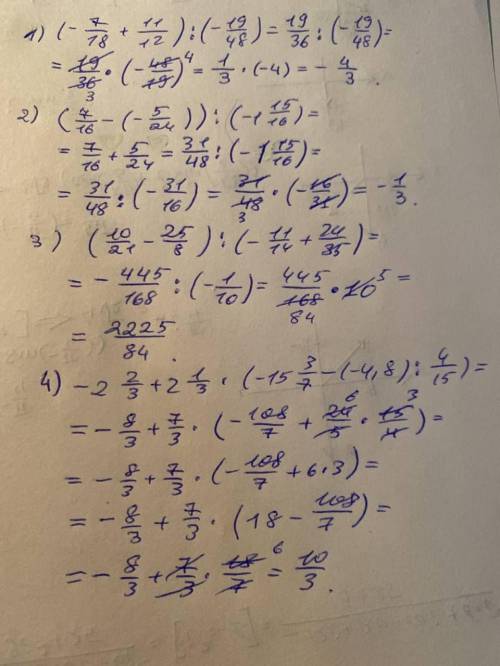 1) (-7/18 + 11/12) : (-19/48) = 19/36 : (-19/48) =
= 19/36 3 · (-48/19) 4 = 1/3 · (-4) = -4/3.
2) (7/16 - (-5/24)) : (-1 15/16) =
= 7/16 + 5/24 = 31/48 : (-1 15/16) =
= 31/48 : (-31/16) = 31/48 3 · (-16/31) = -1/3.
3) (10/21 - 25/8) : (-11/14 + 24/35) =
= -445/168 : (-1/10) = 445/168 84 · 10 5 =
= 2225/84.
4) -2 2/3 + 2 1/3 · (-15 3/7 - (-4,8) : 4/15) =
= -8/3 + 7/3 · (-108/7 + 24/5 6 · 15/4 3) =
= -8/3 + 7/3 · (-108/7 + 6·3) =
= -8/3 + 7/3 · (18 - 108/7) =
= -8/3 + 7/3 · 18/7 6 = 10/3.